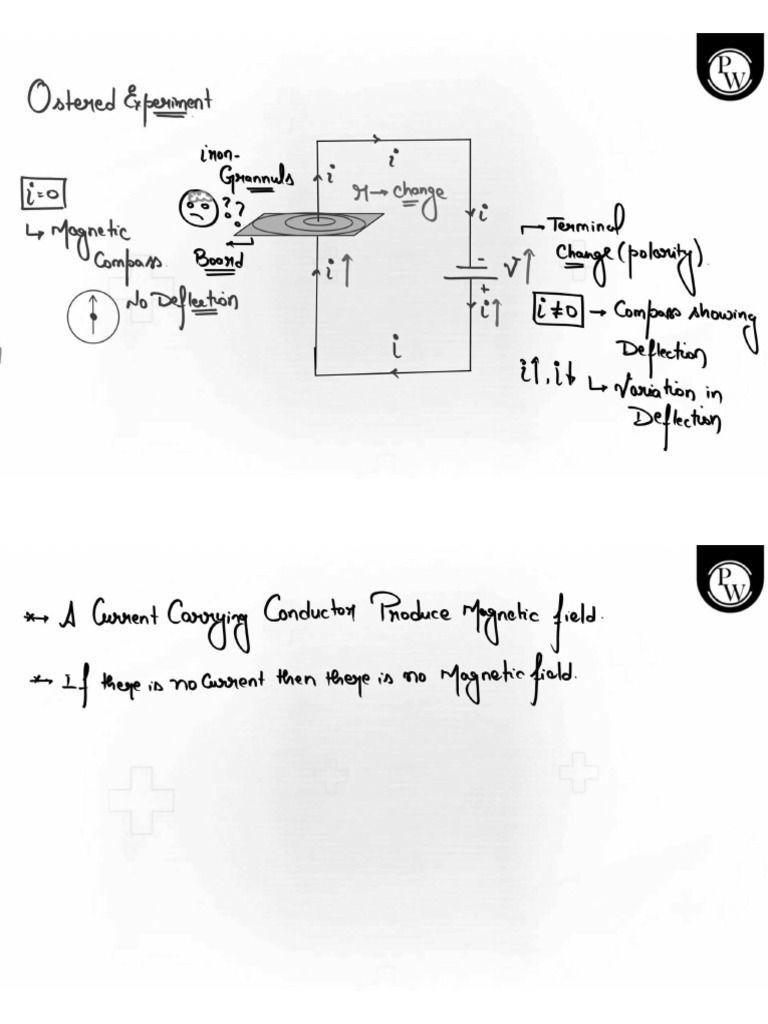 PW
Ostered Experiment
i=0
↳ Magnetic
Compass
No Deflection
iron-
Grannuls
??
Board
i
i
r→ change
i
i↑
- 
V↑
+
i↑
i
Terminal
Change (polarity)
i≠0 → Compass showing
Deflection
i↑, i↓ ↳ Variation in
Deflection
PW
*→ A Current Carrying Conductor Produce Magnetic field.
*→ If there is no Current then there is no Magnetic field.